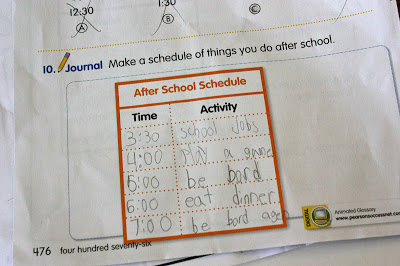 12:30
1:30
A
B
C
10. Journal Make a schedule of things you do after school.
After School Schedule
Time Activity
3:30 school jobs
4:00 a game
5:00 be bord
6:00 eat dinner
7:00 be bord agen
Animated Glossary
www.pearsonsuccessnet.com
476 four hundred seventy-six